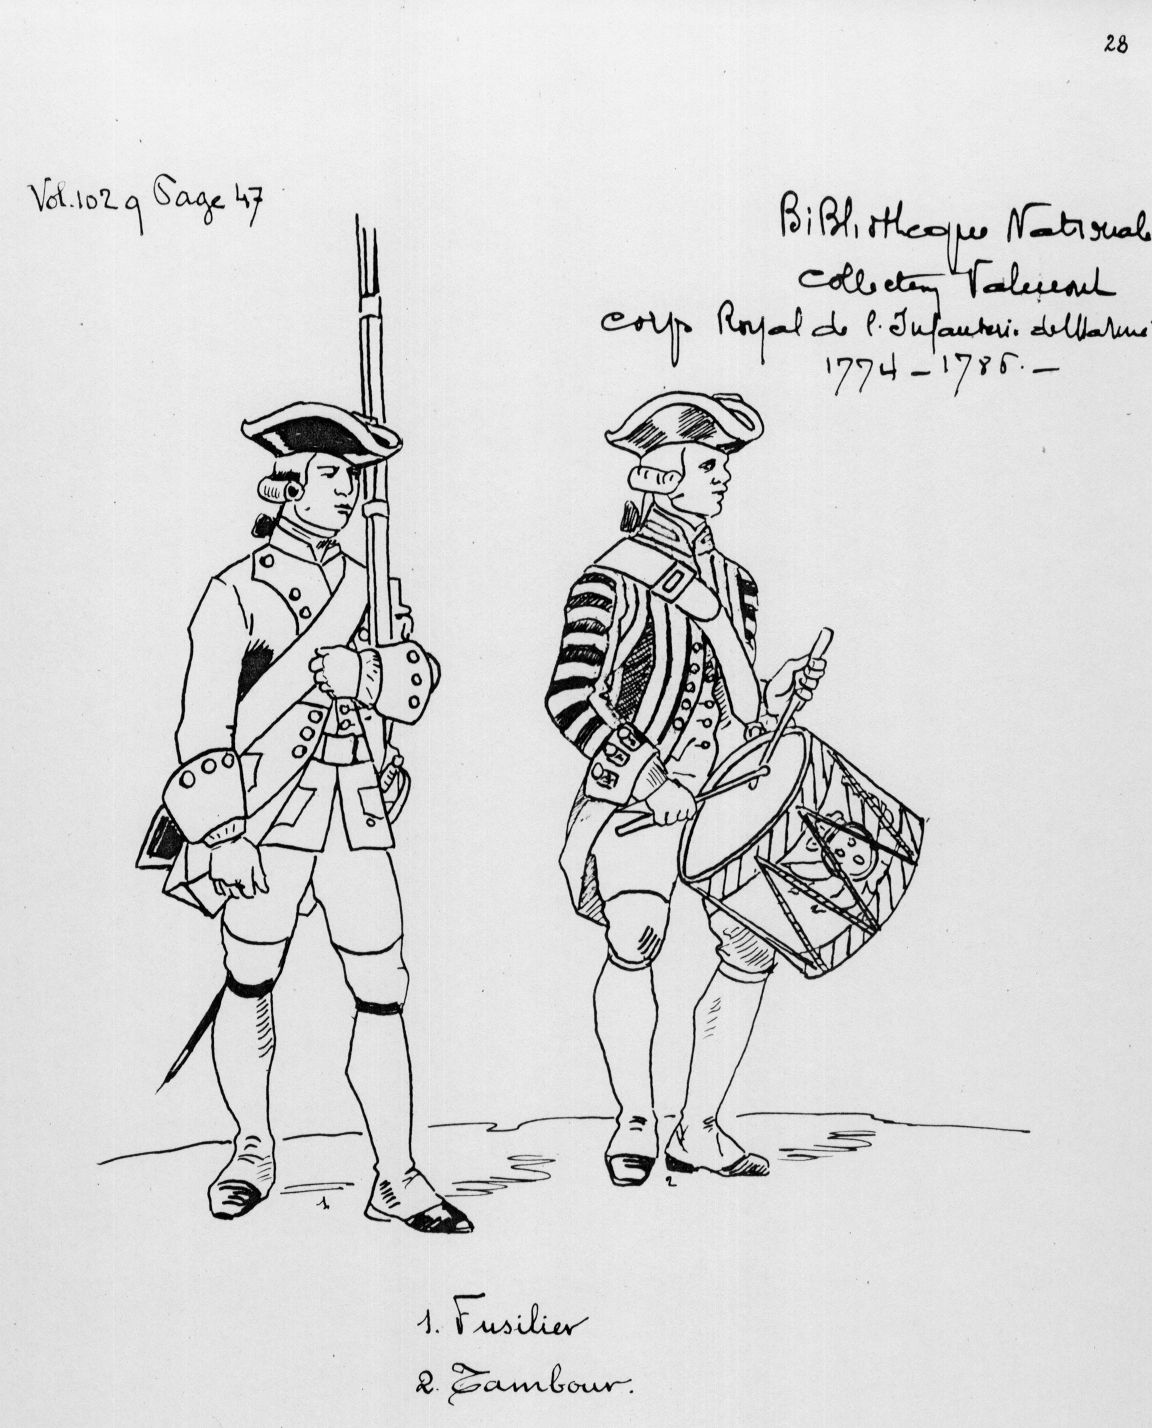 28
Vol. 102 q Page 47
BiBliotheque Nationale
Collection Valmont
Corps Royal de l'Infanterie de Marine
1774 - 1786. -
1
2
1. Fusilier
2. Tambour.